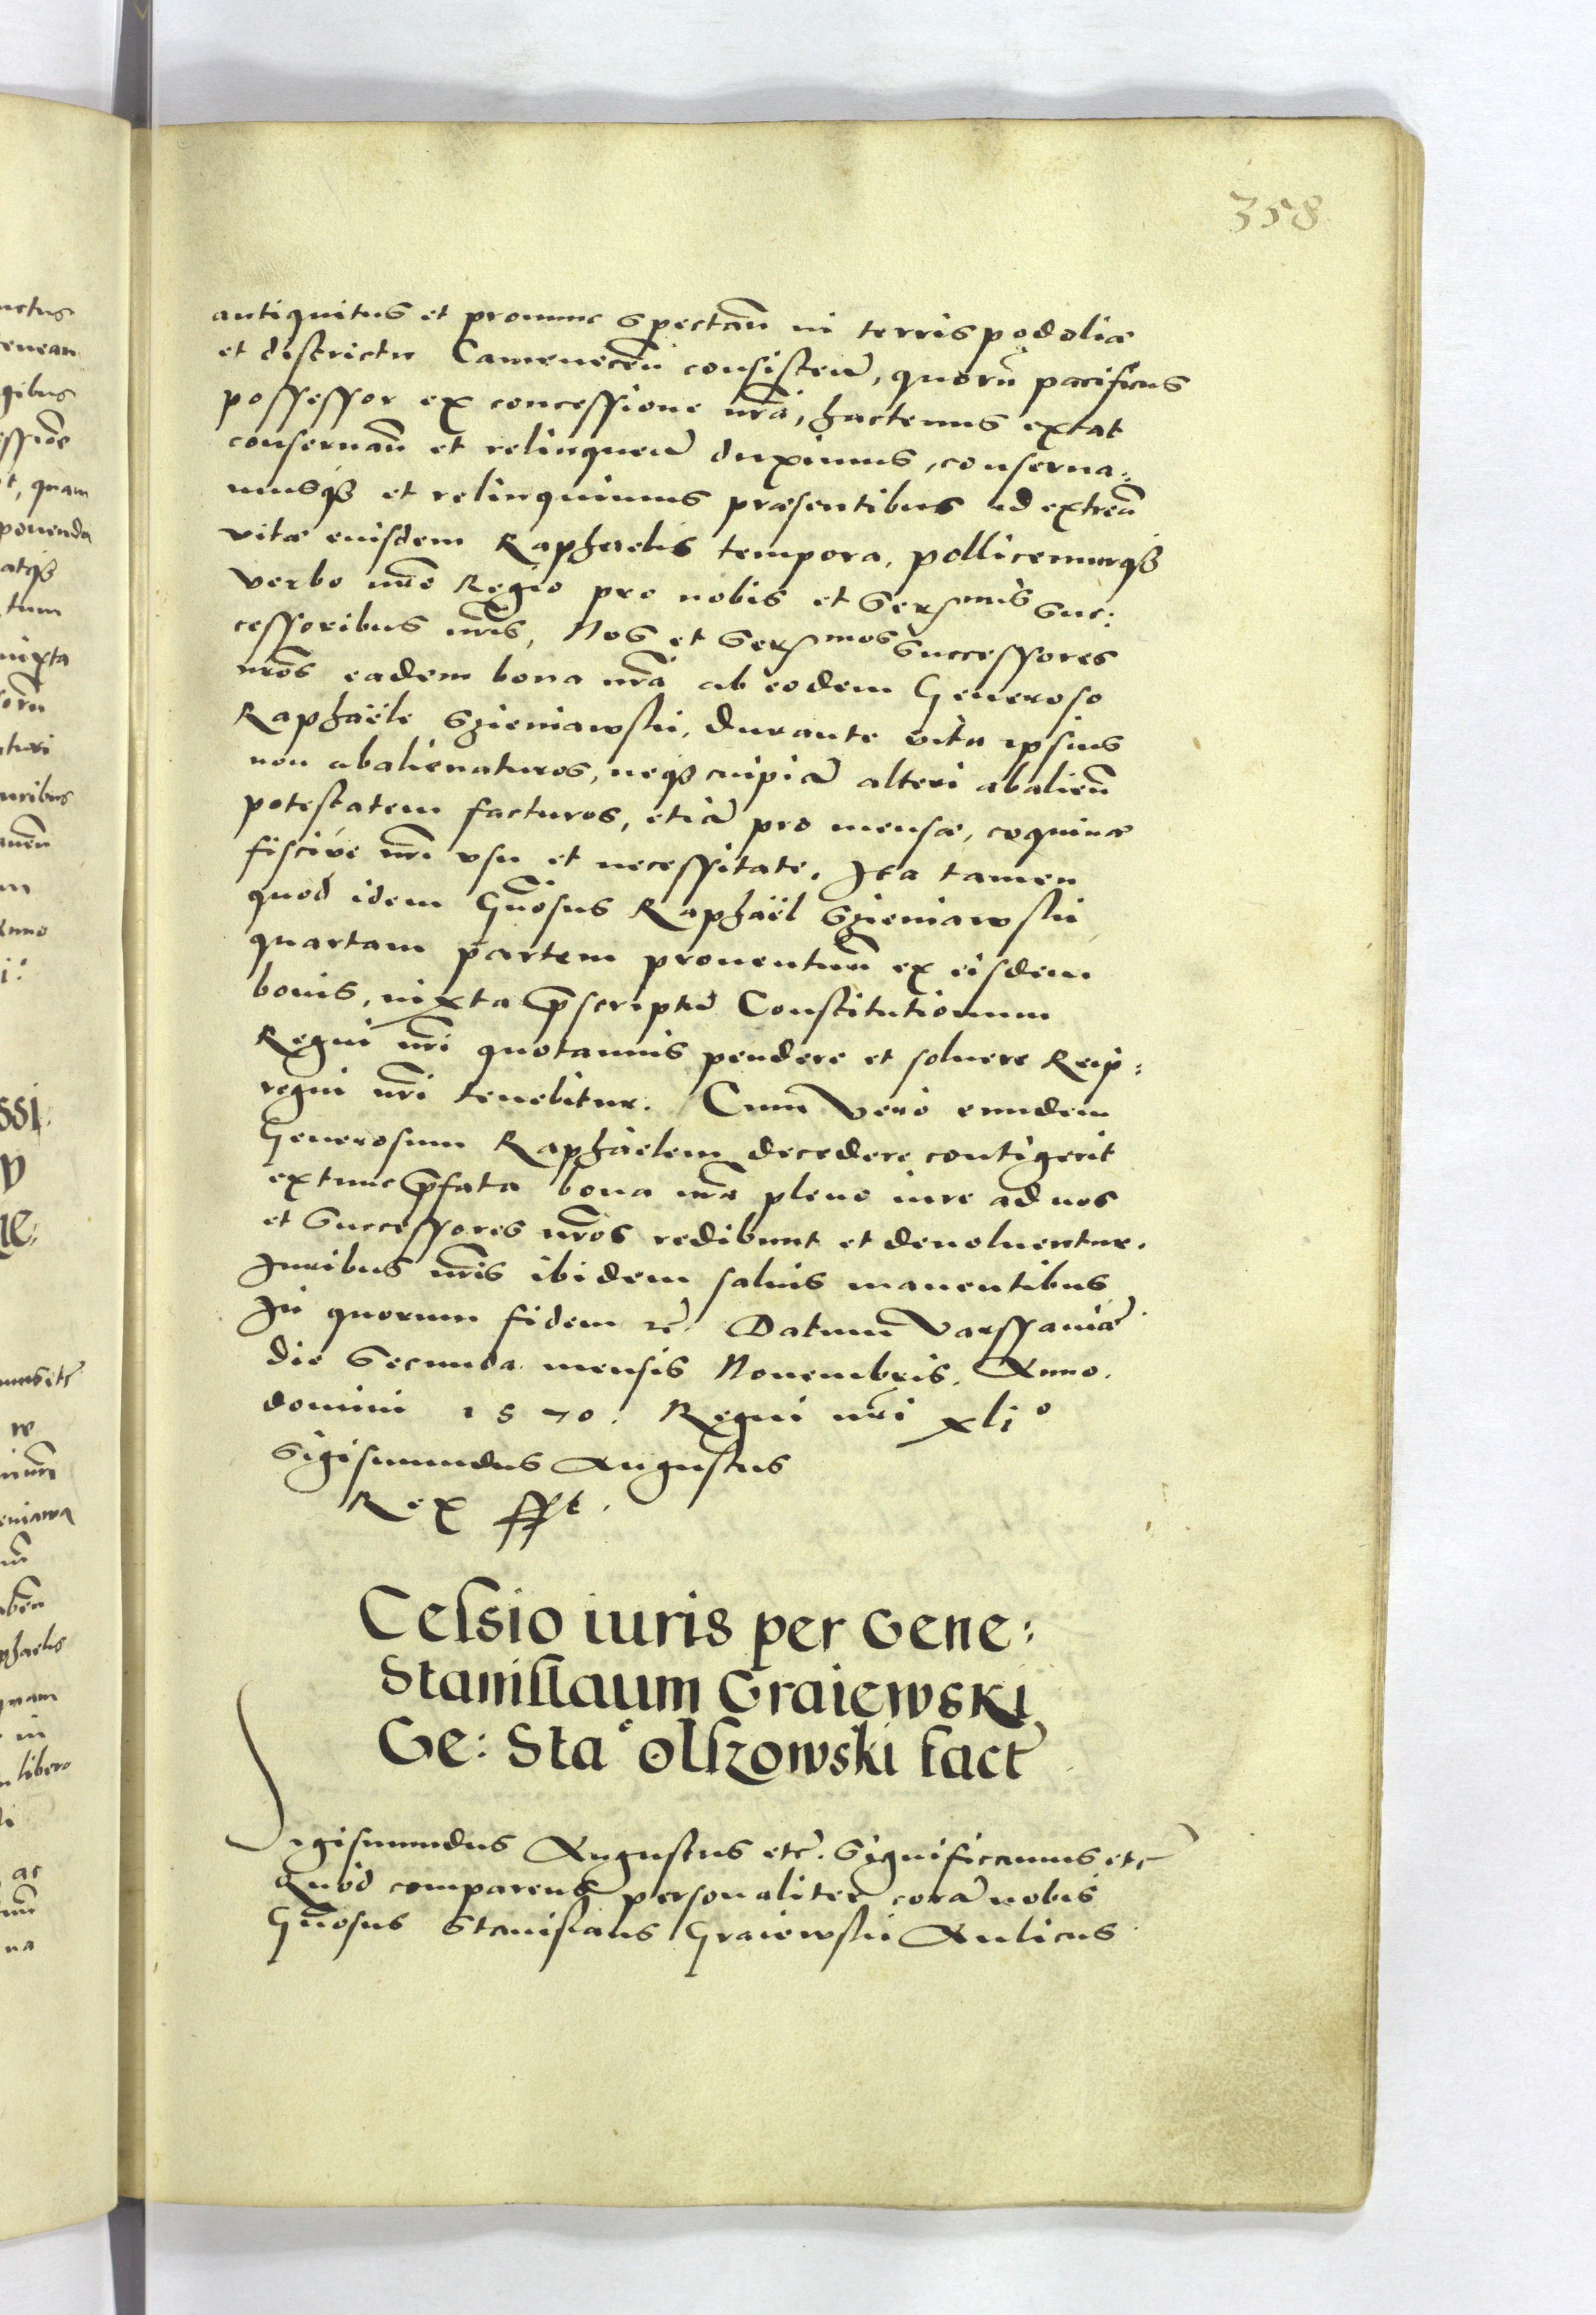 358
antiquitus et pronunc spectan̄ in terris podoliæ
et districtu Camenecen̄ consisten̄, quorū pacificus
possessor ex concessione nr̄a, hactenus extat
conseruan̄ et relinquen̄ duximus, conserua:
musqꝫ et relinquimus præsentibus ad extrēa
vitæ eiusdem Raphaelis tempora, pollicemurqꝫ
verbo nr̄o Regio pro nobis et Serꝫmis Suc:
cessoribus nr̄is, Nos et Serꝫmos Successores
nr̄os eadem bona nr̄a ab eodem Generoso
Raphaële Szieniawski, durante vita ipsius
non abalienaturos, neqꝫ cuipiā alteri abalien̄
potestatem facturos, etiā pro mensæ, coquinæ
fisciúe nr̄i vsu et necessitate. Ita tamen
quod idem Gn̄osus Raphaël Szieniawski
quartam partem prouentuū ex eisdem
bonis, iuxta p̄scriptū Constitutionum
Regni nr̄i quotannis pendere et soluere Reip:
regni nr̄i tenebitur. Cum vero eundem
Generosum Raphaelem decedere contigerit
extunc p̄fata bona nr̄a pleno iure ad nos
et Successores nr̄os redibunt et deuoluentur.
Iuribus nr̄is ibidem saluis manentibus
In quorum fidem ꝛc̄. Datum Varssauiæ
die Secunda mensis Nouembris. Anno.
domini 1570. Regni nr̄i xli°
Sigismundus Augustus
Rex sst.
Cessio iuris per Gene:
Stanislaum Graiewski
Ge: Staᵉ olszowski fact̄
Sigismundus Augustus etc̄. Significamus etc̄
Quod comparens personaliter corā nobis
Gn̄osus Stanislaus Graiewski Aulicus